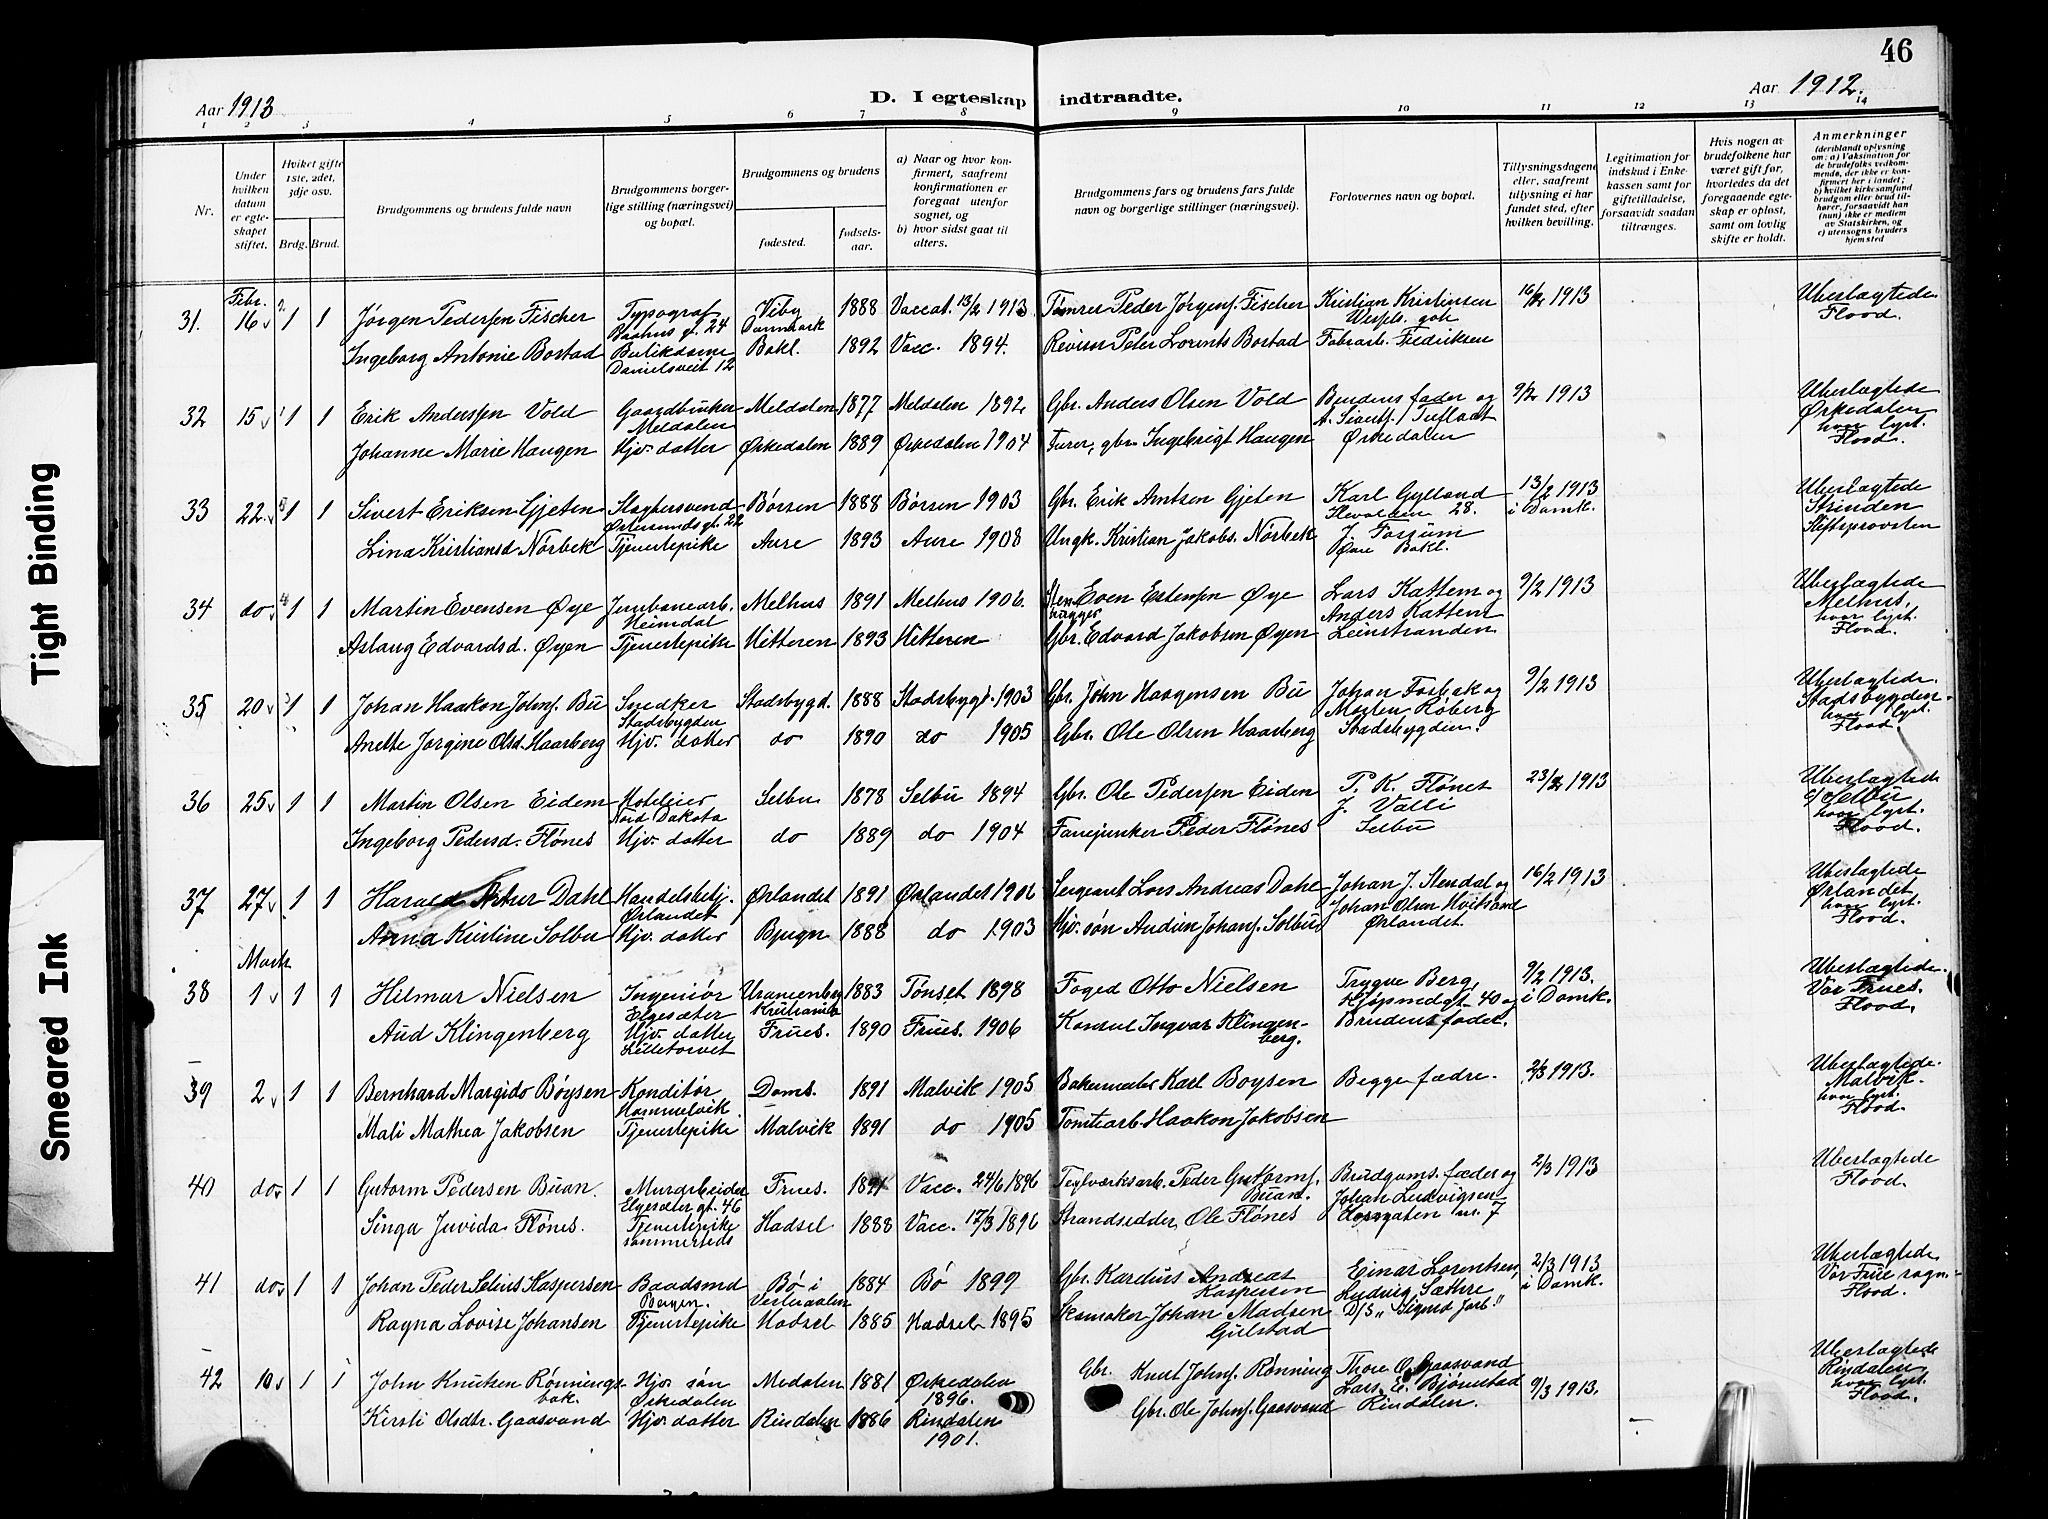 46
Aar 1913
D. I egteskap indtraadte.
Aar 1912.
1 2 3 4 5 6 7 8 9 10 11 12 13 14
Nr.
Under hvilken datum er egteskapet stiftet.
Hvilket gifte 1ste, 2det, 3dje osv.
Brdg. Brud.
Brudgommens og brudens fulde navn
Brudgommens borgerlige stilling (næringsvei) og bopæl.
Brudgommens og brudens
fødested.
fødselsaar.
a) Naar og hvor konfirmert, saafremt konfirmationen er foregaat utenfor sognet, og
b) hvor sidst gaat til alters.
Brudgommens fars og brudens fars fulde navn og borgerlige stillinger (næringsvei).
Forlovernes navn og bopæl.
Tillysningsdagene eller, saafremt tillysning ei har fundet sted, efter hvilken bevilling.
Legitimation for indskud i Enkekassen samt for giftetilladelse, forsaavidt saadan tiltrænges.
Hvis nogen av brudefolkene har været gift før, hvorledes da det foregaaende egteskap er opløst, samt om lovlig skifte er holdt.
Anmerkninger (deriblandt oplysning om: a) Vaksination for de brudefolks vedkommende, der ikke er konfirmert her i landet; b) hvilket kirkesamfund brudgom eller brud tilhører, forsaavidt han (hun) ikke er medlem av Statskirken, og c) utensogns bruders hjemsted
Febr.
31. 16 1 1 Jørgen Pedersen Fischer Typograf Viby Danmark 1888 Vaccat. 13/2 1913 Tømrer Peder Jørgens. Fischer Kristian Kristinsen 16/2 1913 Uberlagtede Flood.
Ingeborg Antonie Bostad Danielsveit 12 Bakl. 1892 Vacc. 1894. Revisor Peter Lorents Bostad Fabrarb. Fredriksen
32 15 1 1 Erik Anderssen Vold Gaardbruker Meldalen Meldalen 1877 Meldalen 1892 Gbr. Anders Olsen Vold Brudens fader og 9/2 1913 Uberlagtede Ørkedalen hvor lyst. Flood.
Johanne Marie Haugen Hjv. datter Ørkedalen 1889 Ørkedalen 1904 gbr. Ingebrigt Haugen Ørkedalen
33 22 1 1 Sivert Eriksen Gjeten Slagtersvend Børsen 1888 Børsen 1903 Gbr. Erik Arntsen Gjeten Karl Gylland 28. 13/2 1913 i Domk. Uberlagtede Strinden Stiftsprovsten
Lina Kristiansd Nörbek Tjenestepike Aure 1893 Aure 1908 Ungk. Kristian Jakobs. Nørbek J. Forsum Øvre Bakl.
34 do 1 1 Martin Evensen Øye Jernbanearb. Heimdal Melhus 1891 Melhus 1906. Stenhugger Even Estensen Øye Lars Kattem og Anders Kattem 9/2 1913 Uberlagtede Melhus, hvor lyst. Flood.
Aslaug Edvardsd. Øyen Tjenestepike Hitteren 1893 Hitteren Gbr. Edvard Jakobsen Øyen Leinstranden
35 20 1 1 Johan Haakon Johns. Bu Snedker Stadsbygden Stadsbygd. 1888 Stadsbygd. 1903 Gbr. John Haagensen Bu Johan Forbak og Morten Røberg 9/2 1913 Uberlagtede. Stadsbygden hvor lyst. Flood.
Anette Jørgine Olsd. Haarberg Hjv. datter do 1890 do 1905 Gbr. Ole Olsen Haarberg Stadsbygden.
36 25 1 1 Martin Olsen Eidem Hoteleier Nord Dakota Selbu 1878 Selbu 1894 Gbr. Ole Pedersen Eiden P. K. Flønes J. Valli 23/2 1913 Uberlagtede Selbu hvor lyst. Flood.
Ingeborg Pedersd. Flønes Hjv. datter do 1889 do 1904 Fanejunker Peder Flønes Selbu
37 27 1 1 Harald Artur Dahl Handelsbetj. Ørlandet Ørlandet 1891 Ørlandet 1906 Sergeant Lars Andreas Dahl Johan J. Stendal og Johan Olsen Hviksand 16/2 1913 Uberlagtede Ørlandet hvor lyst. Flood.
Anna Kirstine Solbu Hjv. datter Bjugn 1888 do 1903 Hjv. søn Audun Johans. Solbu Ørlandet.
Marts
38 1 1 1 Hilmar Nielsen Ingeniør Elgesæter Uranienborg Kristiania 1883 Tønset 1898 Foged Otto Nielsen Trygve Berg, Kjøpmdgt 40 og 9/2 1913. i Domk. Uberlagtede. Vor Frues. Flood.
Aud Klingenberg Hjv. datter Lilletorvet Frues. 1890 Frues. 1906 Konsul Ingvar Klingenberg. Brudens fader.
39 2 1 1 Bernhard Margido Bøysen Konditør Hommelvik Doms. 1891 Malvik 1905 Bakermester Karl Boysen Begge fædre. 2/3 1913. Uberlagtede. Malvik. hvor lyst. Flood.
Mali Mathea Jakobsen Tjenestepike Malvik 1891 do 1905 Tomtearb. Haakon Jakobsen
40 do 1 1 Gutorm Pedersen Buan. Murarbeider Elgesæter gt. 46 Frues. 1891 Vacc. 24/6 1896 Teglværksarb. Peder Guttorms. Buan. Brudgoms. fader og Johan Ludvigsen 2/3 1913 Uberlagtede Flood.
Singa Juvida Flönes. Tjenestepike Hadsel 1888 Vacc. 17/3 1896 Strandsidder Ole Flönes nr. 7
41 do 1 1 Johan Peder Selius Kaspersen Baadsmd Bergen. Bø i Vesteraalen 1884 Bø 1899 Gbr. Kardius Andreas Kaspersen Einar Lorentsen, Ludvig Sæthre 2/3 1913 i Domk. Uberlagtede Vor Frue sogn. Flood.
Ragna Lovise Johansen Tjenestepike Hadsel 1885 Hadsel 1895 Skomaker Johan Madsen Gulstad D/S „Sigurd Jarl."
42 10 1 1 John Knutsen Rønningsbak. Hjv. søn Ørkedalen Medalen 1881 Ørkedalen 1896. Gbr. Knut Johns. Rønning Thore O. Gaasvand Lars E. Bjørnstad 9/3 1913. Uberlagtede Rindalen hvor lyst. Flood.
Kirsti Olsdtr. Gaasvand Hjv. datter Rindalen 1886 Rindalen 1901. Gbr. Ole Johns. Gaasvand Rindalen.
Tight Binding
Smeared Ink